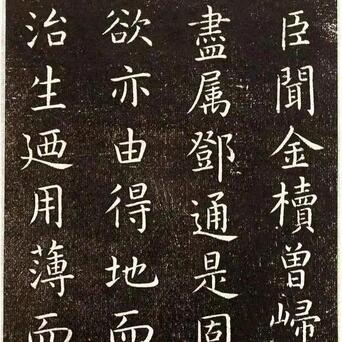 臣聞金櫝曾歸
盡属鄧通是固
欲亦由得地而
治生廼用薄而